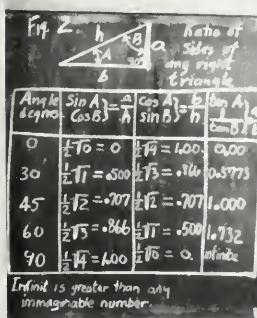 Fig 2.
h B a
A 90°
b
Ratio of
Sides of
any right
triangle
Angle degrees | Sin A CosB} = a/h | Cos A Sin B} = b/h | tan A 1/tanB}
0 | ½√0 = 0 | ½√4 = 1.00 | 0.00
30 | ½√1 = .500 | ½√3 = .866 | 0.5773
45 | ½√2 = .707 | ½√2 = .707 | 1.000
60 | ½√3 = .866 | ½√1 = .500 | 1.732
90 | ½√4 = 1.00 | ½√0 = 0. | infinite
Infinit is greater than any
immaginable number.